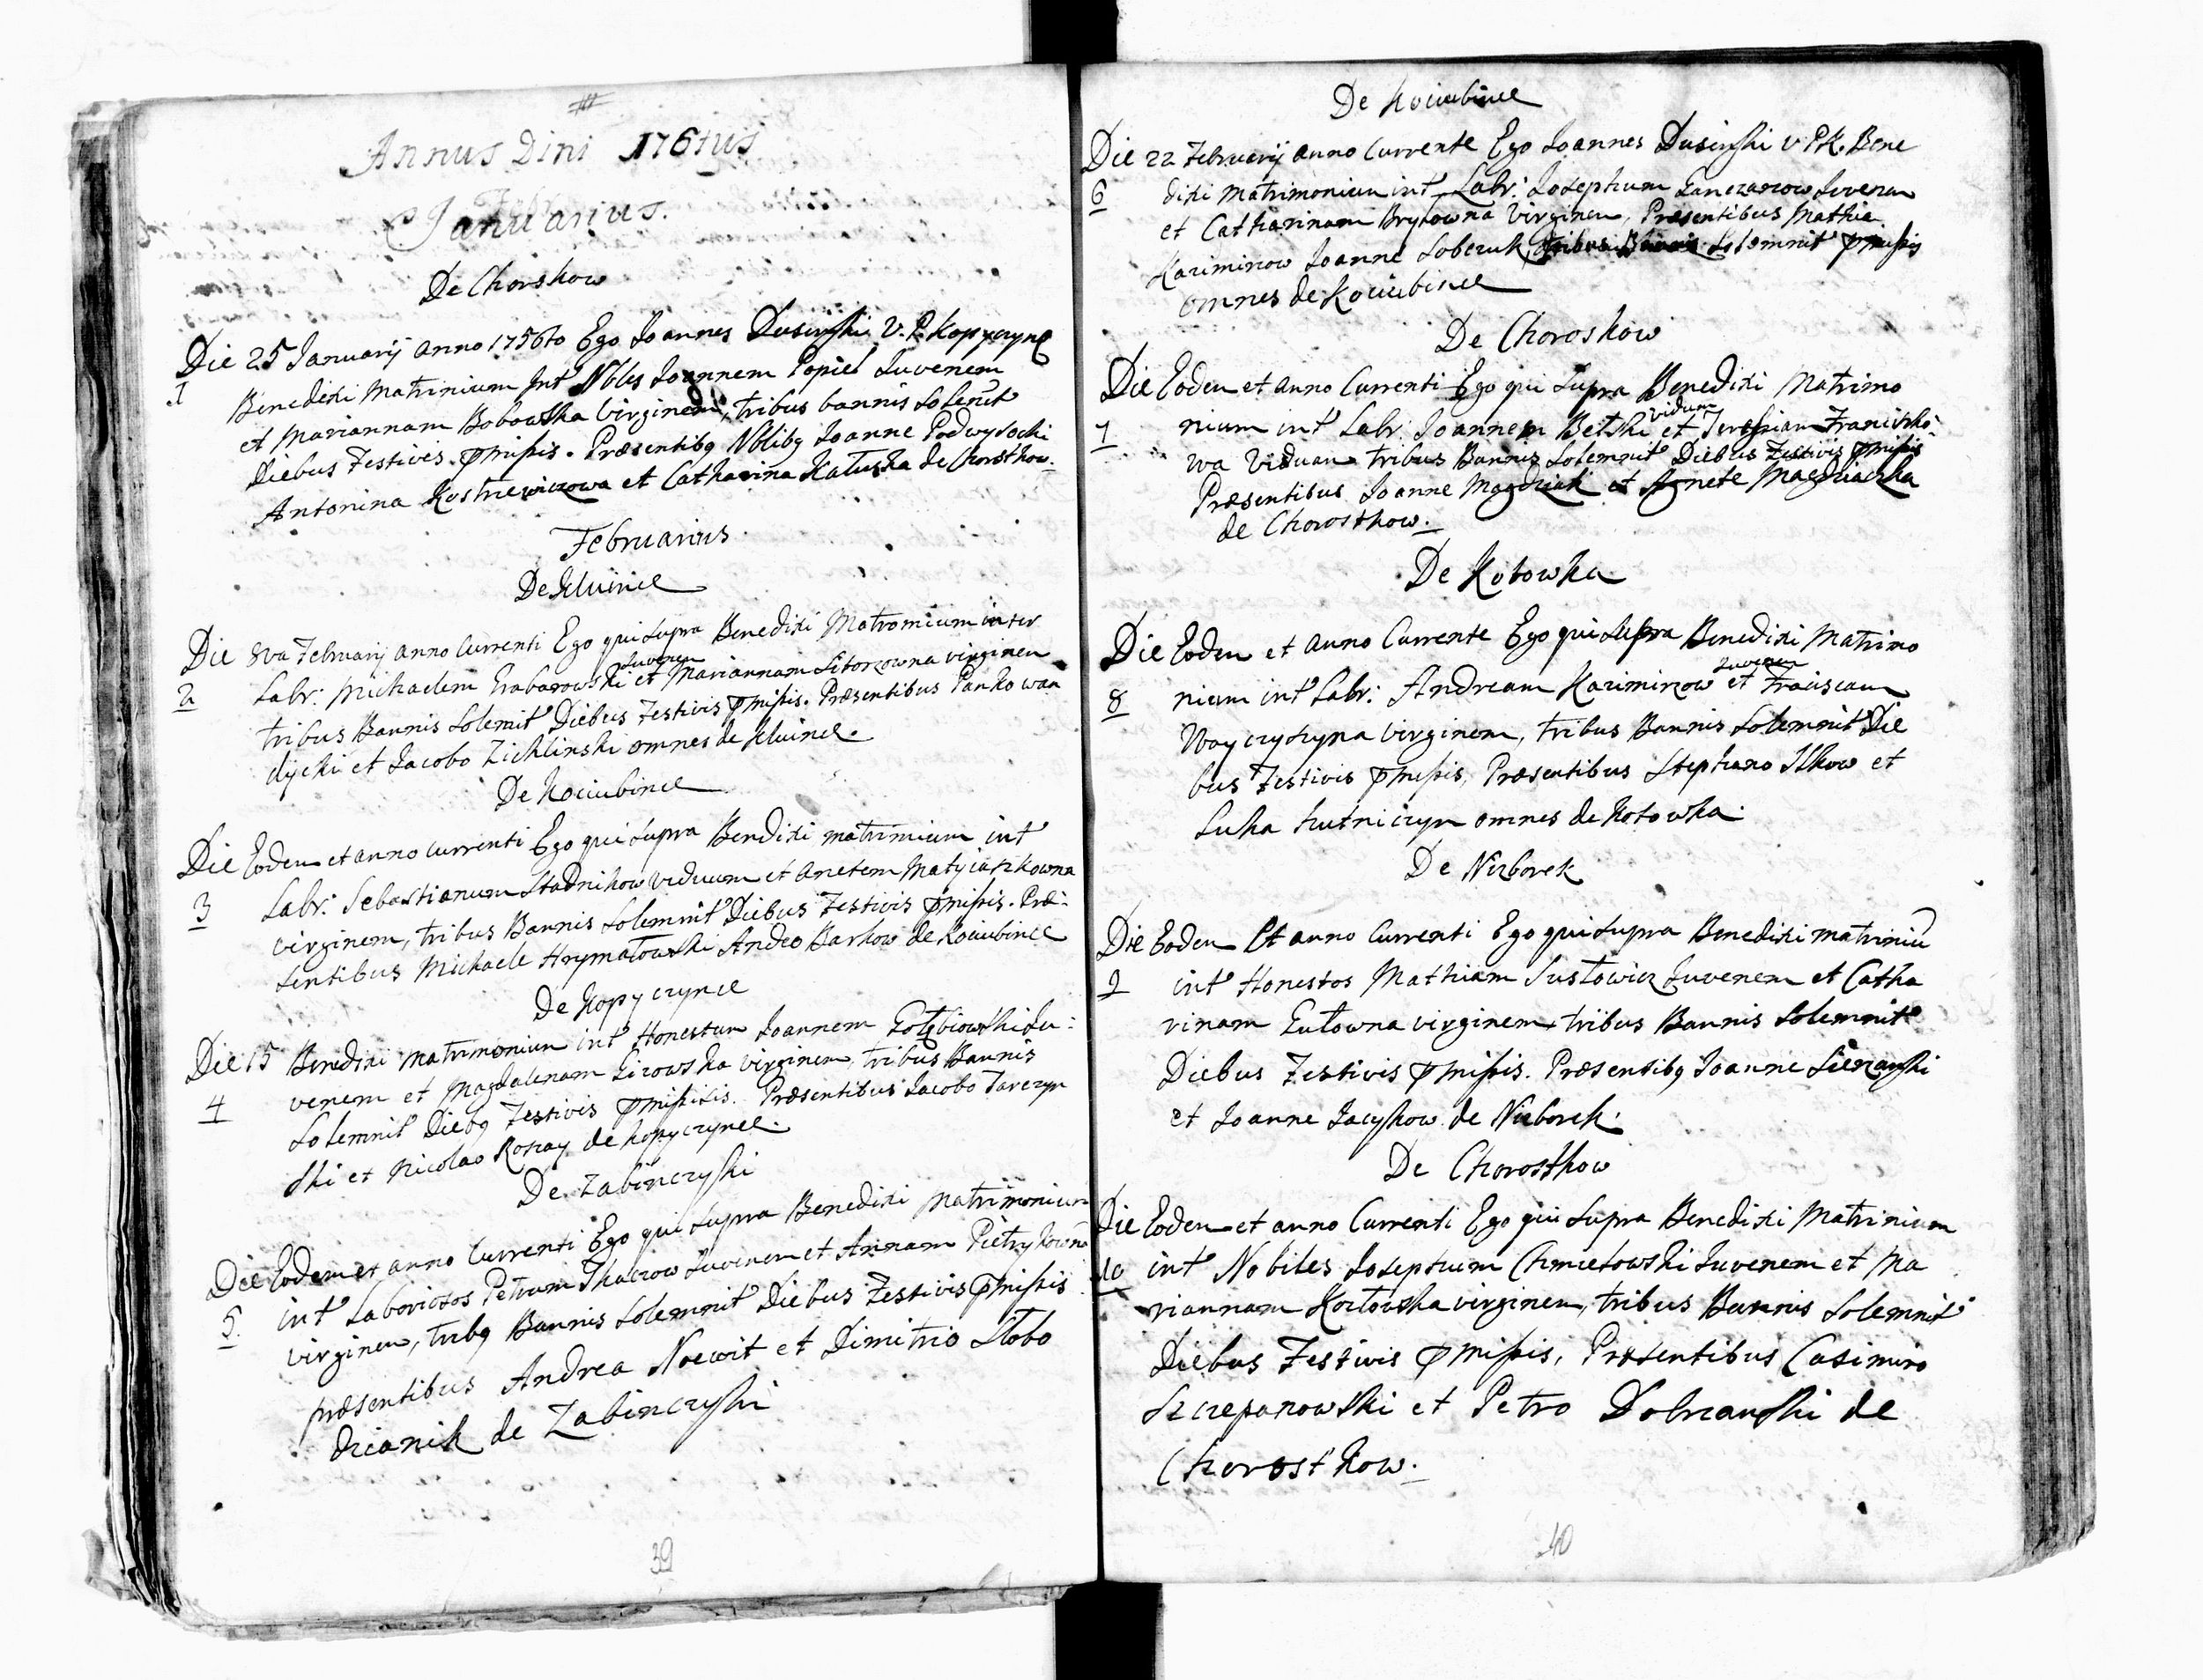 Annus Dini 176tus
Januarius.
De Chorskow
Die 25 Januarij anno 1756to Ego Joannes Dusinski V. P. Kopyczyne
1 Benedixi Matrinium Int Nbles Joannem Popiel Juvenem
et Mariannam Bobowska Virginem, tribus bannis Solenit
Diebus Festivis pmissis. Præsentibq Nblibq Joanne Podwysocki
Antonina Kostrzewiczowa et Catharina Kaluska de Chorsthow.
Februarius
De Kluince
Die 8va Februarij anno Currenti Ego qui supra Benedixi Matromium inter
2 Labr: Michaelem Grabarowski Juvenem et Mariannam Sitorzowna virginem
tribus Bannis Solemit Diebus Festivis pmissis. Præsentibus Panko wan
dycki et Jacobo Zichlinski omnes de Kluince.
De Kociubince
Die Eodem et anno currenti Ego qui supra Bendixi matrimium int
3 Labr: Sebastianum Stadnikow viduum et anetem Matyiaszkowna
virginem, tribus Bannis Solemnit Diebus Festivis pmissis. Præ:
sentibus Michaele Hrymatowski Andeo Barkow de Kociubince
De Kopyczynce
Die 15 Benedixi Matrimonium int Honestum Joannem Gołębiowski Ju:
4 venem et Magdalenam Lizowska virginem, tribus Bannis
Solemnit Diebq Festivis pmissisis. Præsentibus Jacobo Tarczyn
ski et Nicolao Roszay de Kopyczynce.
De Zabinczyki
Die Eodem et anno Currenti Ego qui supra Benedixi Matrimonium
5. int Laboriosos Petrum Skalzow Juvenem et Annam Pietrykowna
virginem, tribq Bannis Solemnit Diebus Festivis pmissis
præsentibus Andrea Noewit et Dimitrio Słobo
dzianik de Zabinczyki
39
De Kociubince
Die 22 Februarij anno Currente Ego Joannes Dusinski V P K. Bene
6 dixi Matrimonium int Labr: Josephum Ganczarzow Juvenem
et Catharinam Brykowna Virginem, Præsentibus Mathia
Kazimirow Joanne Sobczuk, tribus Bannis Solemnit pmissis
omnes de Kociubince
De Choroskow
Die Eodem et anno Currenti Ego qui supra Benedixi Matrimo
7 nium int Labr: Joannem Betski viduum et Teressiam Franciszko
wa Viduam tribus Bannis Solemnit Diebus Festivis pmissis
Præsentibus Joanne Magdziak et Agnete Magdziaczka
de Chorosthow.
De Kotowka
Die Eodem et anno Currente Ego qui supra Benedixi Matrimo
8 nium int Labr: Andream Kazimirzow Juvenem et Franciscam
Woyczyszyna virginem, tribus Bannis Solemnit Die
bus Festivis pmissis, Præsentibus Stephano Ilkow et
Luka Hutniczyn omnes de Kotowka.
De Nizborek
Die Eodem Et anno Currenti Ego qui supra Benedixi matriniū
9 int Honestos Mathiam Sustowicz Juvenem et Catha
rinam Gutowna virginem, tribus Bannis Solemnit
Diebus Festivis pmissis. Præsentibq Joanne Sierzanski
et Joanne Jacyskow de Nizborek.
De Chorosthow
Die Eodem et anno Currenti Ego qui supra Benedixi Matrinium
10 int Nobiles Josephum Chmietowski Juvenem et Ma
riannam Kozłowska virginem, tribus Bannis Solemnit
Diebus Festivis pmissis, Præsentibus Casimiro
Szczepanowski et Petro Dobrzanski de
Chorosthow.
40